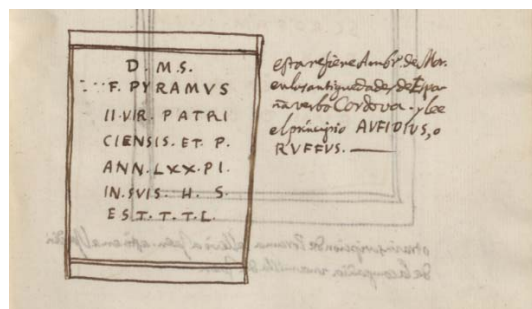 D. M. S.
F. PYRAMVS
II. VIR. PATRI
CIENSIS. ET. P.
ANN. LXX. PI.
IN. SVIS. H. S.
EST. T. T. L.
esta refiere Ambr. de Mor.
en las antiguedades de Espa
ña verbo Cordova. y lee
el principio AVFIDIVS, o
RVFFVS.